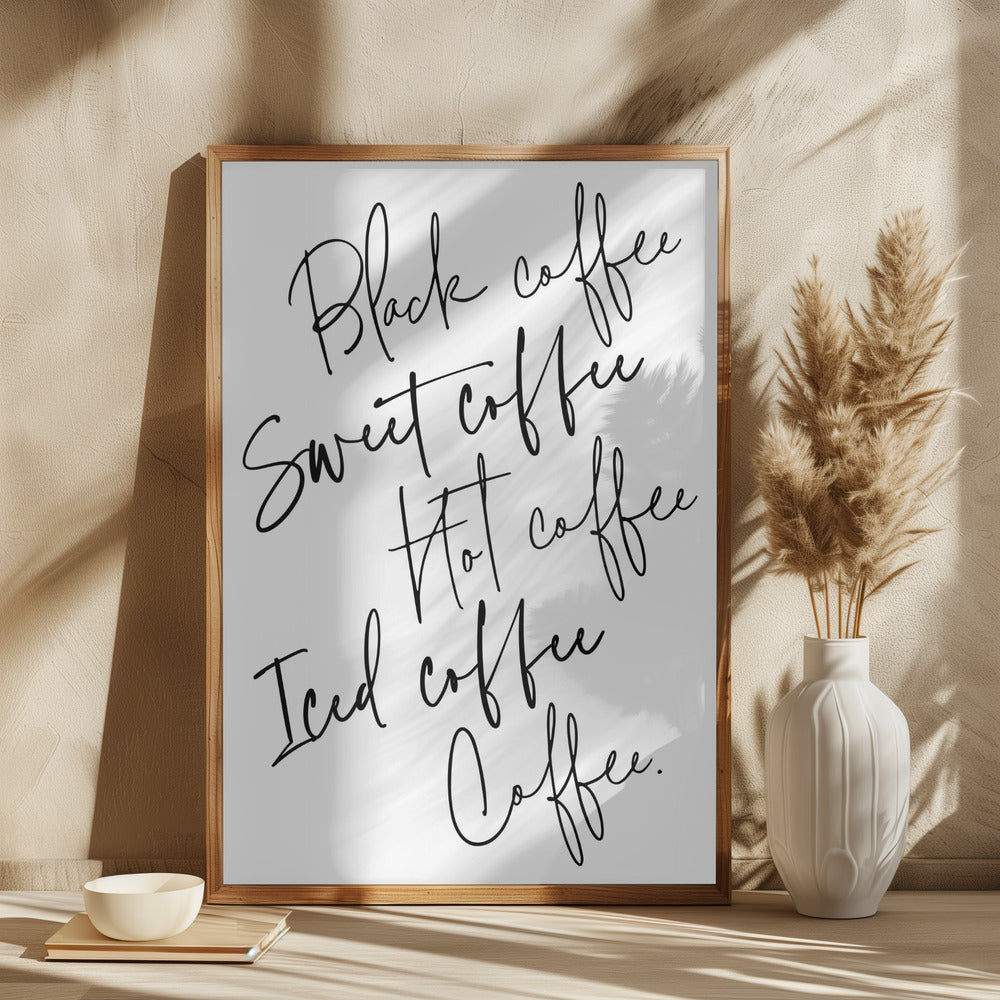 Black coffee
Sweet coffee
Hot coffee
Iced coffee
Coffee.